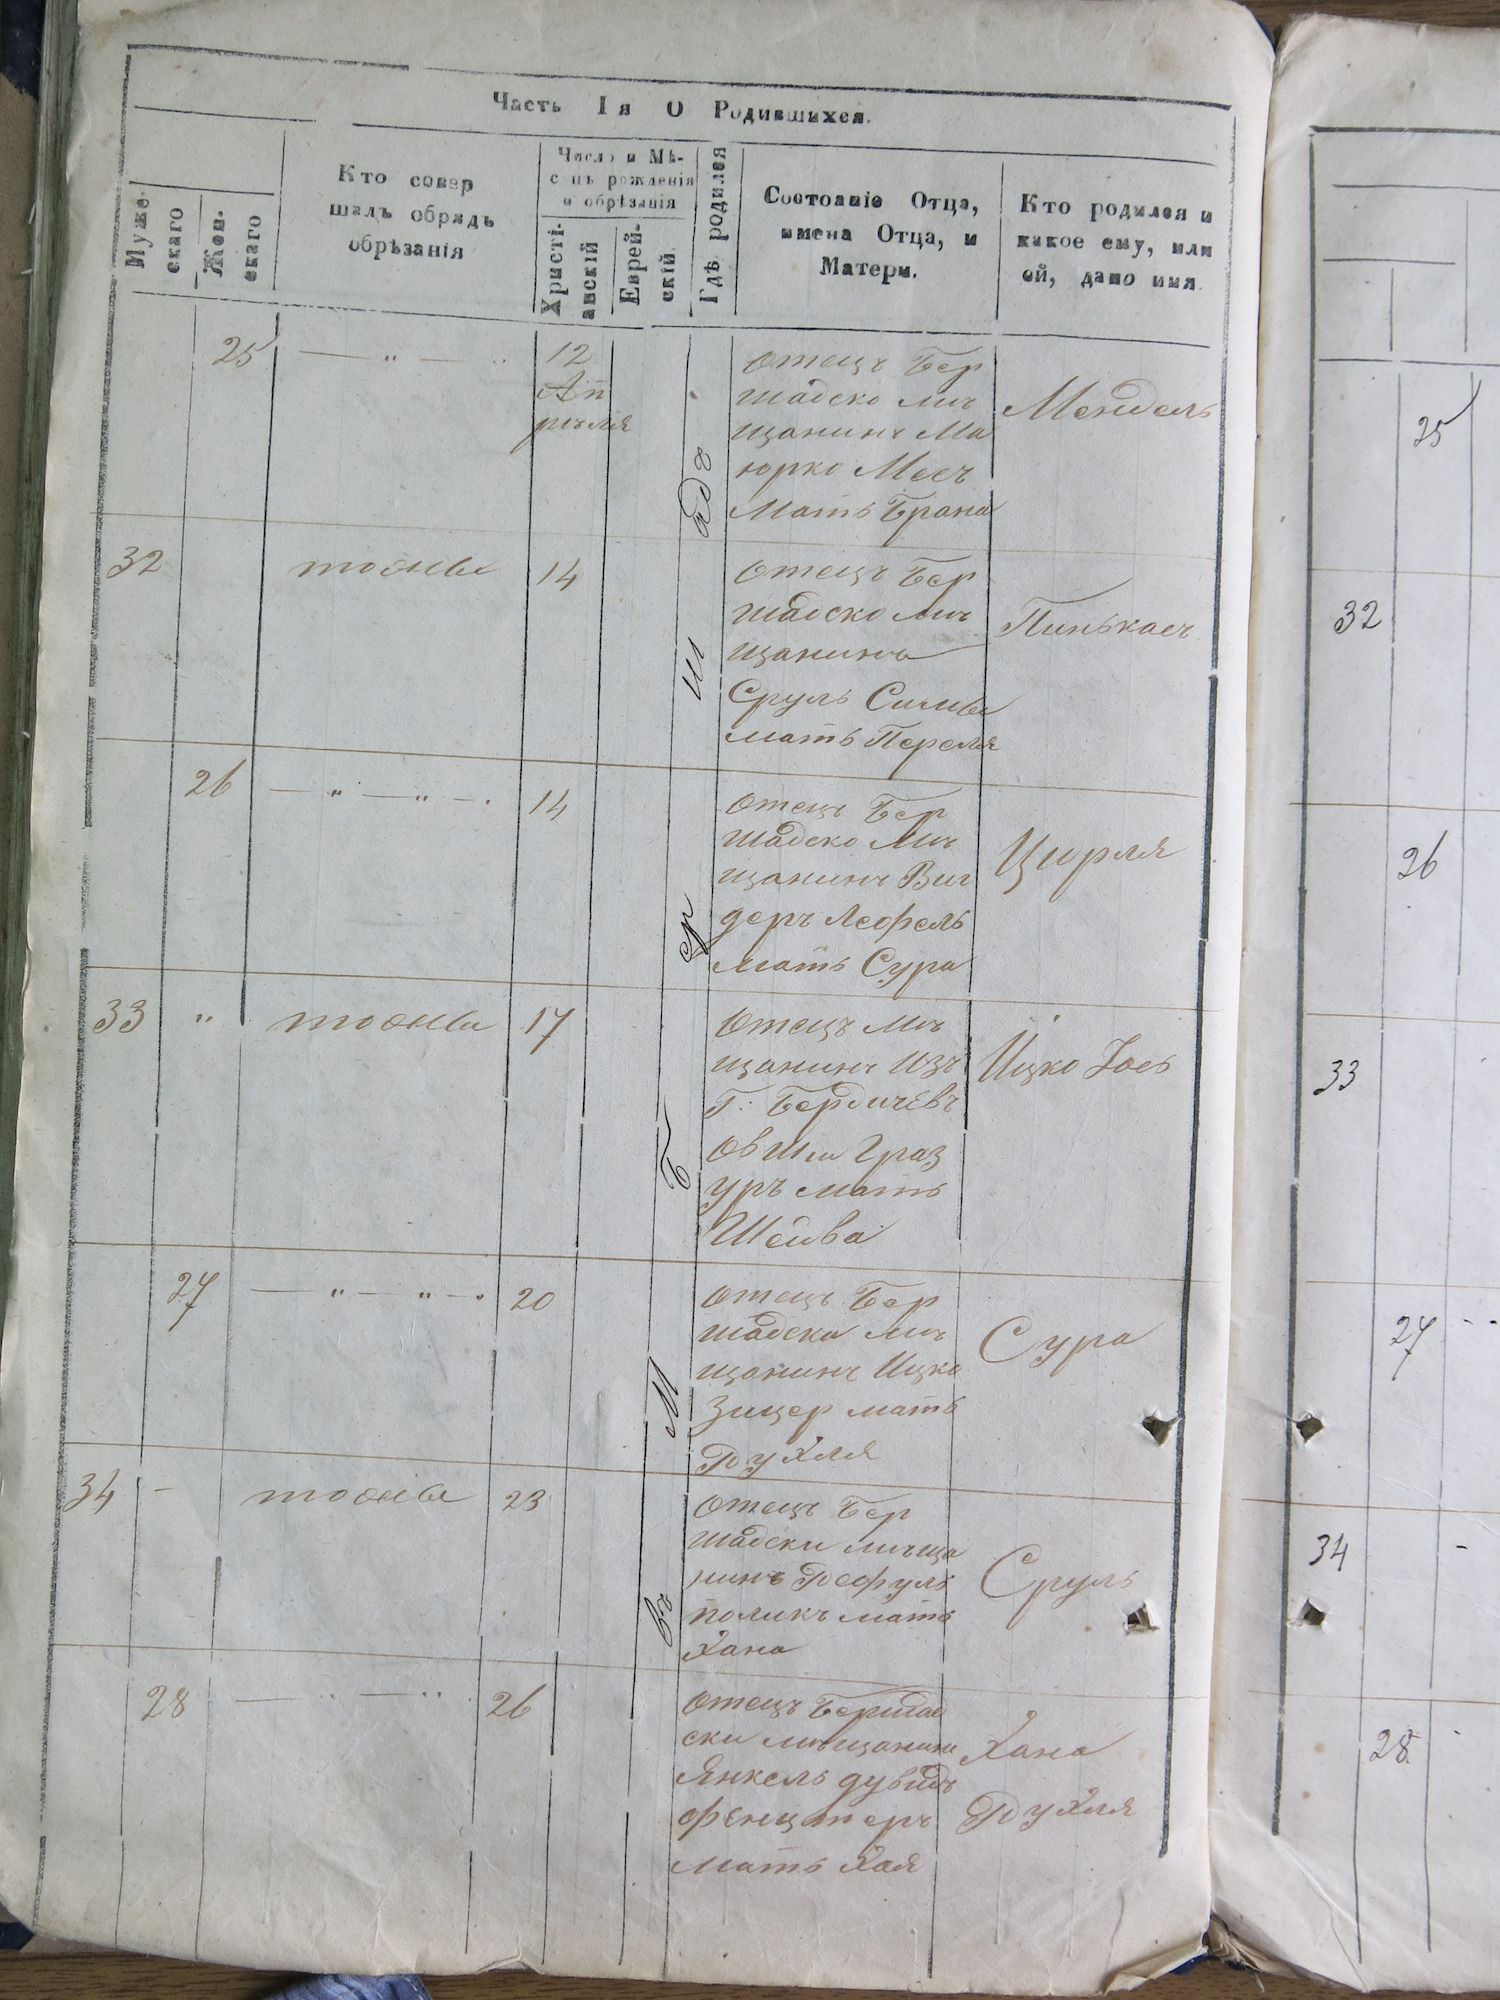 Часть Iя О Родившихся.
Муже-
скаго
Жен-
скаго
Кто совер
шалъ обрядъ
обрѣзанія
Число и Мѣ-
сяцъ рожденія
и обрѣзанія
Христі-
анскій
Еврей-
скій
Гдѣ родился
Состояніе Отца,
имена Отца, и
Матери.
Кто родился и
какое ему, или
ей, дано имя
въ М Бершадѣ
25
— " — "
12
Ап
рѣля
отецъ Бер
шадско мѣ
щанинъ Ма
юрко Месъ
Мать Брана
Мендель
32
тоэжы
14
отецъ Бер
шадско мѣ
щанинъ
Сруль Симвы
мать Переля
Пинькасъ
26
— " — " —
14
отецъ Бер
шадско мѣ
щанинъ Виг
деръ Леофель
мать Сура
Цирля
33
"
тоэжы
17
отецъ мѣ
щанинъ изъ
Г. Бердичевъ
овши Граз
уръ мать
Шейва
Ицко Іось
27
— " — " —
20
отецъ Бер
шадска мѣ
щанинъ Ицко
Зицер мать
Рухля
Сура
34
-
тоэжы
23
отецъ Бер
шадски мѣща
нинъ Рефуль
поликъ мать
Хана
Сруль
28
— " — "
26
отецъ Бершад
ски мѣщанинъ
Янкель дувидъ
фенцтеръ
мать Хая
Хана
Рухля
25
32
26
33
27
34
-
28